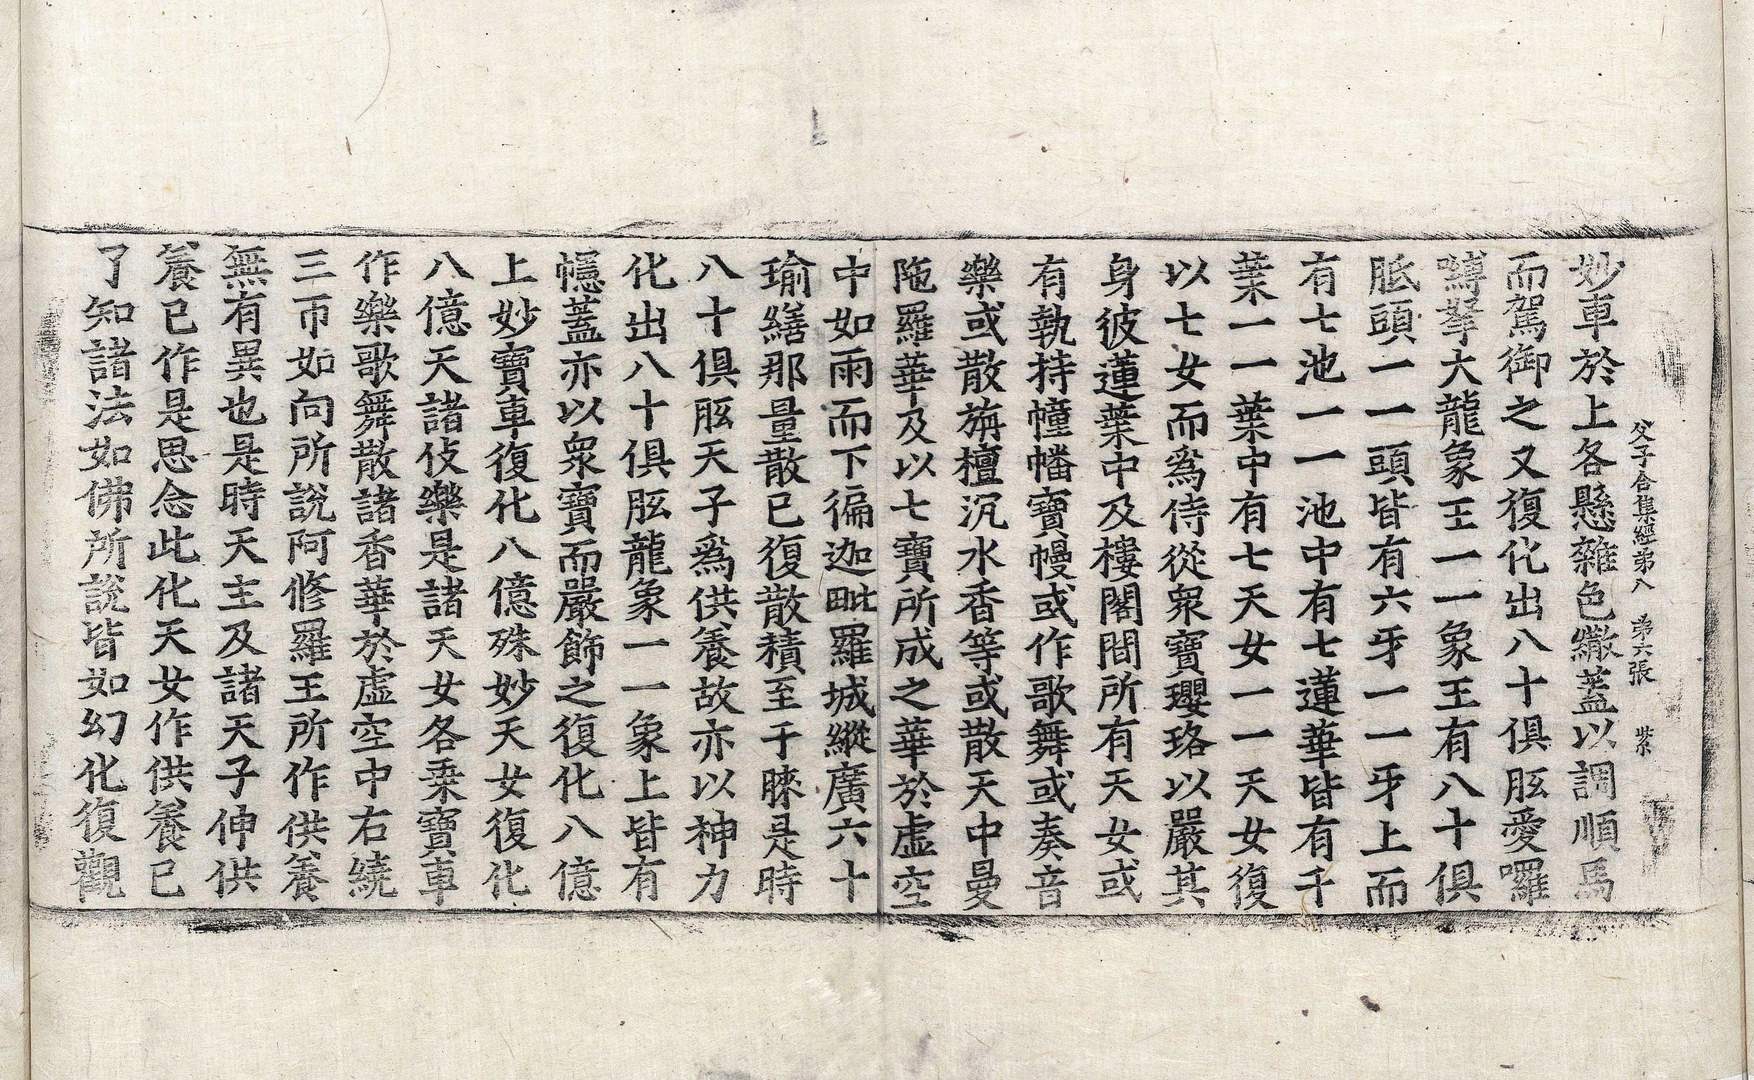 父子合集經第八　第六張　紫
妙車於上各懸雜色繖蓋以調順馬
而駕御之又復化出八十俱胝愛囉
嚩拏大龍象王一一象王有八十俱
胝頭一一頭皆有六牙一一牙上而
有七池一一池中有七蓮華皆有千
葉一一葉中有七天女一一天女復
以七女而爲侍從衆寶瓔珞以嚴其
身彼蓮葉中及樓閣閒所有天女或
有執持幢幡寶幔或作歌舞或奏音
樂或散旃檀沉水香等或散天中曼
陁羅華及以七寶所成之華於虛空
中如雨而下徧迦毗羅城縱廣六十
瑜繕那量散已復散積至于膝是時
八十俱胝天子爲供養故亦以神力
化出八十俱胝龍象一一象上皆有
幰蓋亦以衆寶而嚴飾之復化八億
上妙寶車復化八億殊妙天女復化
八億天諸伎樂是諸天女各乘寶車
作樂歌舞散諸香華於虛空中右繞
三帀如向所說阿修羅王所作供養
無有異也是時天主及諸天子伸供
養已作是思念此化天女作供養已
了知諸法如佛所說皆如幻化復觀